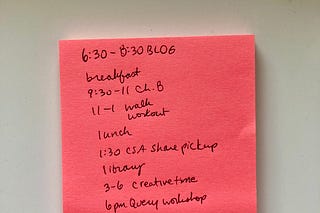 6:30-8:30 BLOG
breakfast
9:30-11 Ch.8
11-1 walk
workout
lunch
1:30 CSA share pickup
library
3-6 creative time
6pm Query workshop